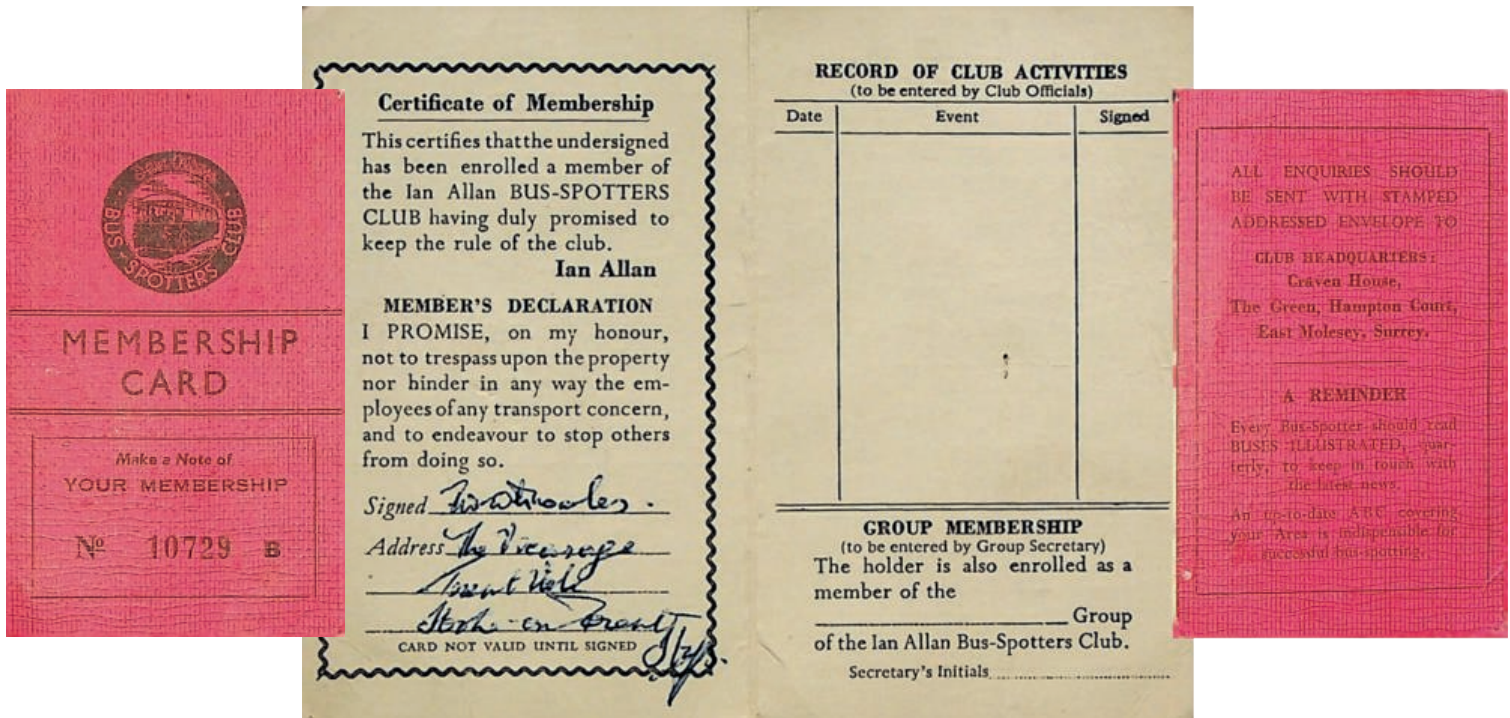 BUS-SPOTTERS CLUB
MEMBERSHIP
CARD
Make a Note of
YOUR MEMBERSHIP
Nº 10729 B
Certificate of Membership
This certifies that the undersigned
has been enrolled a member of
the Ian Allan BUS-SPOTTERS
CLUB having duly promised to
keep the rule of the club.
Ian Allan
MEMBER'S DECLARATION
I PROMISE, on my honour,
not to trespass upon the property
nor hinder in any way the em-
ployees of any transport concern,
and to endeavour to stop others
from doing so.
Signed
Address The Vicarage
Trent Vale
Stoke-on-Trent
CARD NOT VALID UNTIL SIGNED
RECORD OF CLUB ACTIVITIES
(to be entered by Club Officials)
Date Event Signed
GROUP MEMBERSHIP
(to be entered by Group Secretary)
The holder is also enrolled as a
member of the
Group
of the Ian Allan Bus-Spotters Club.
Secretary's Initials
ALL ENQUIRIES SHOULD
BE SENT WITH STAMPED
ADDRESSED ENVELOPE TO
CLUB HEADQUARTERS:
Craven House,
The Green, Hampton Court,
East Molesey, Surrey.
A REMINDER
Every Bus-Spotter should read
BUSES ILLUSTRATED, quar-
terly, to keep in touch with
the latest news.
An up-to-date ABC covering
your Area is indispensable for
successful bus-spotting.